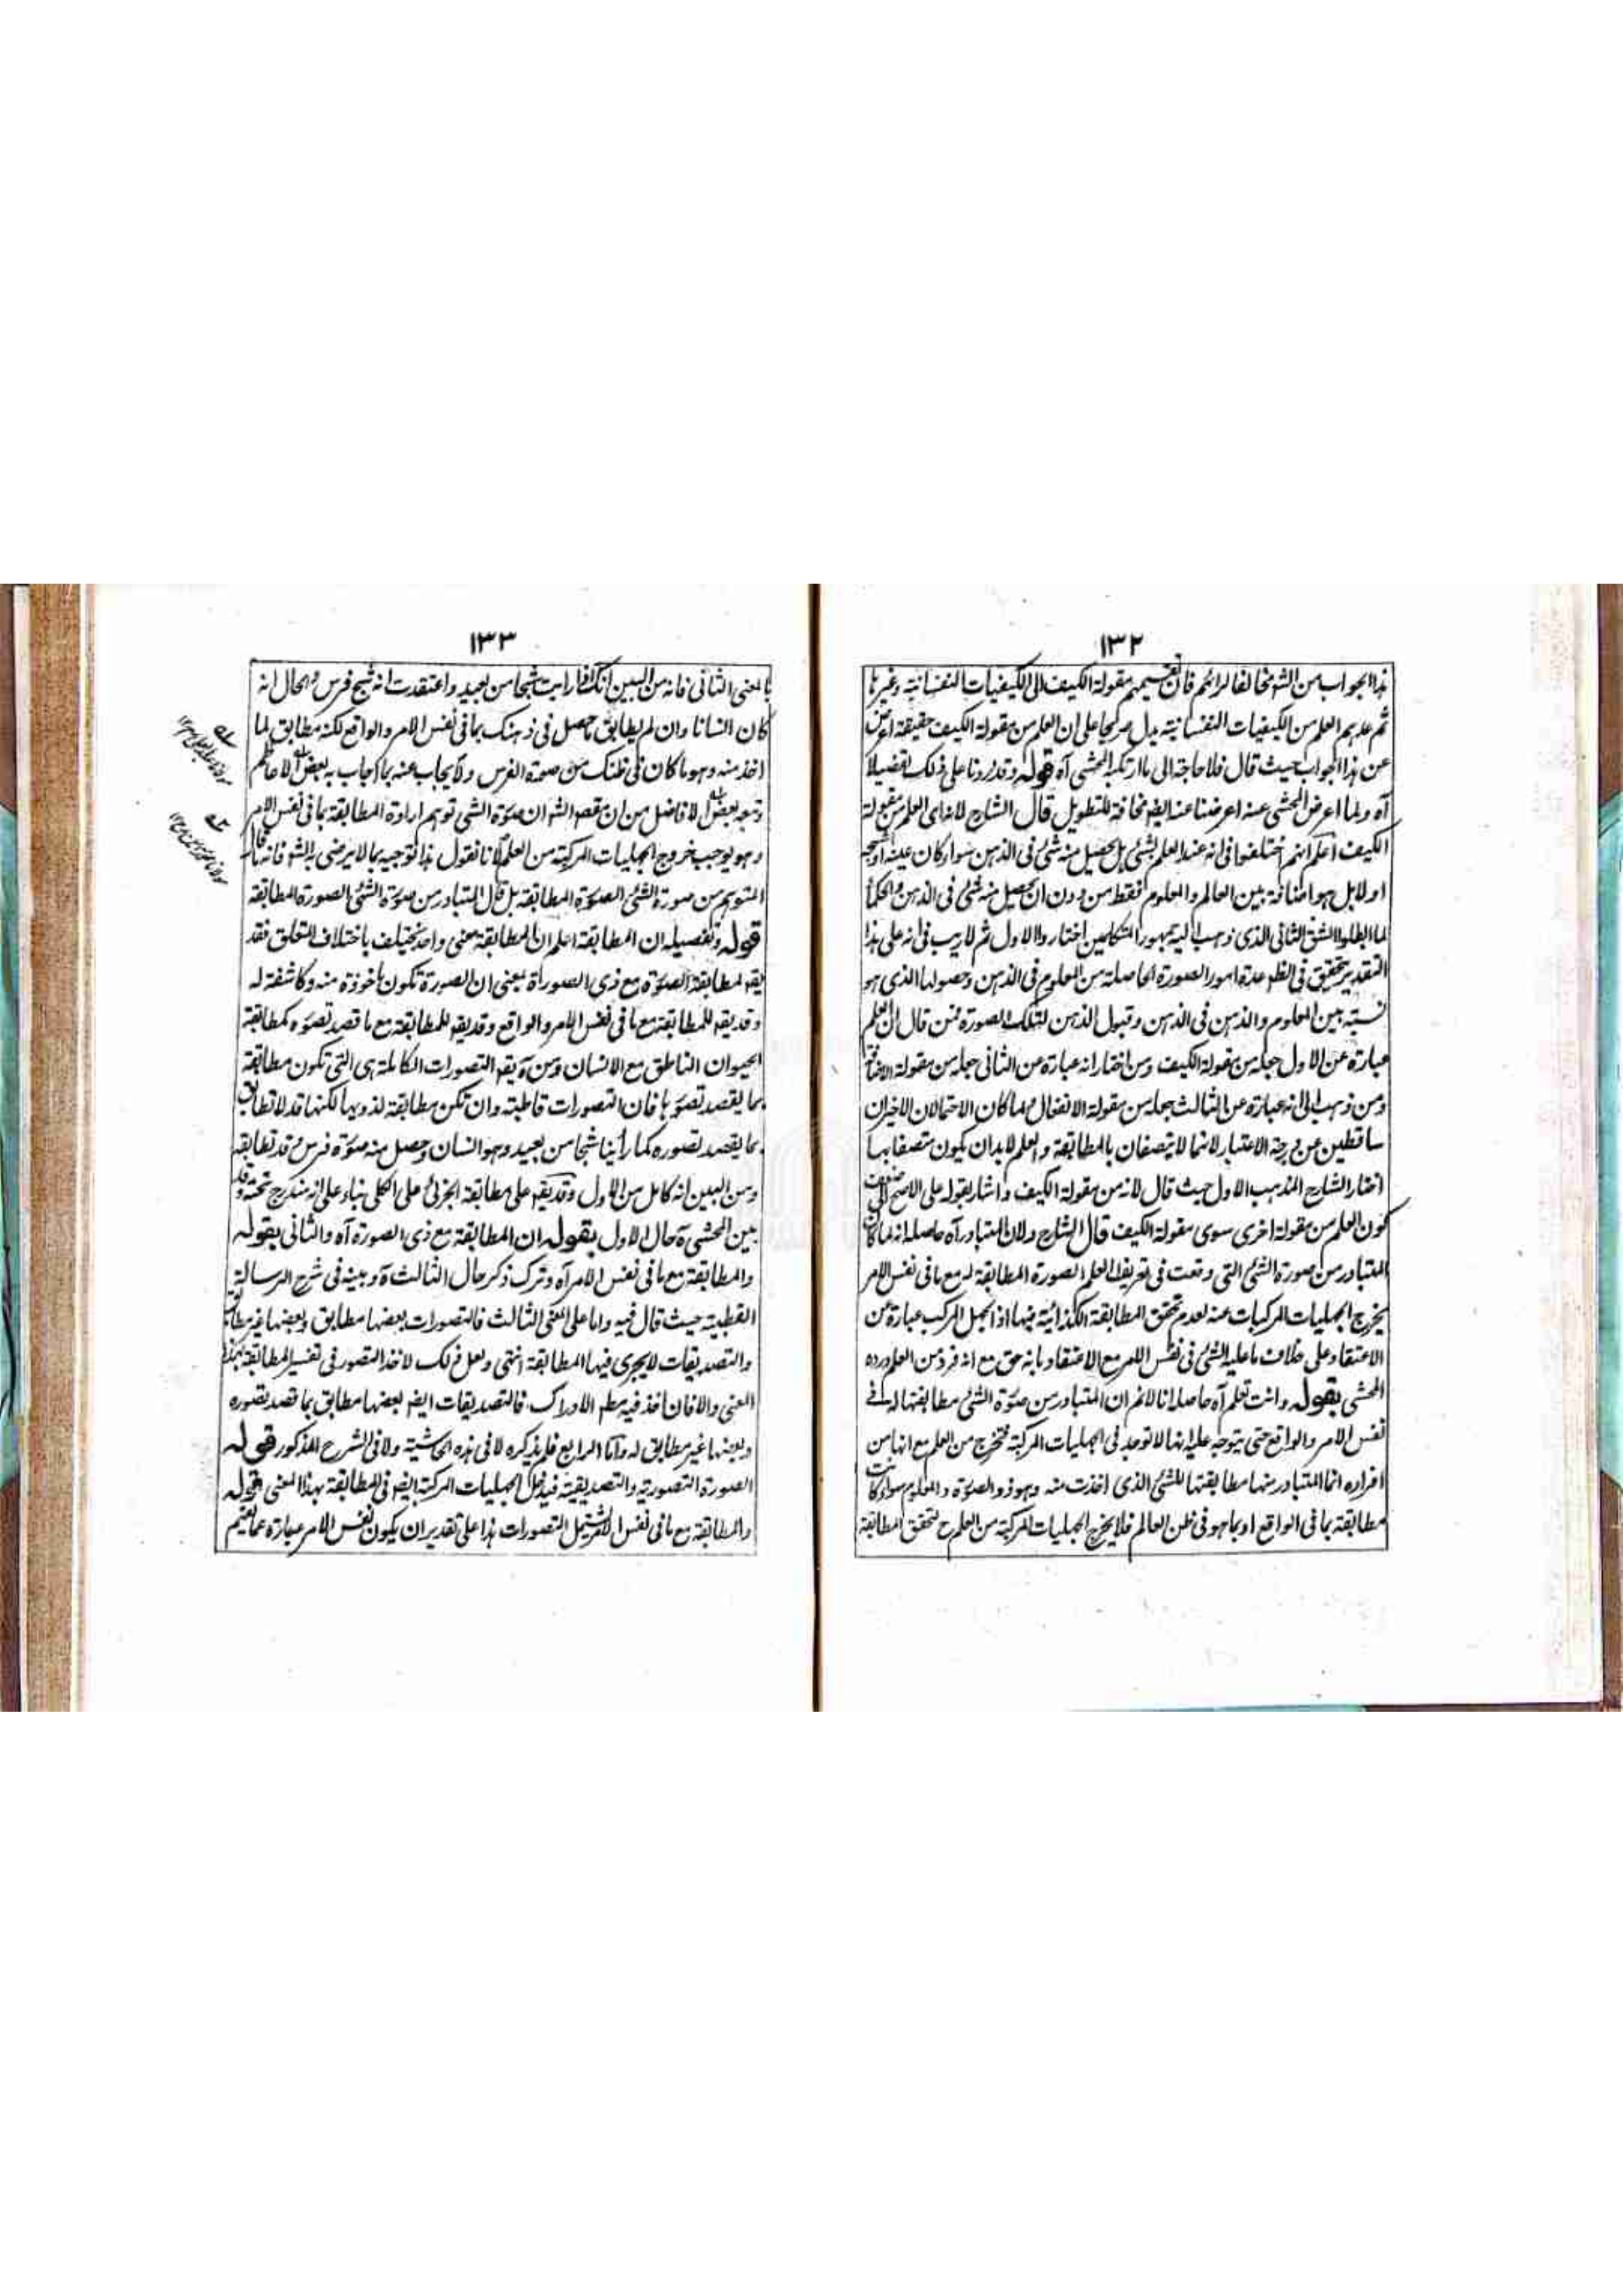 ١٣٢
هذا الجواب من الشه مخالفا لرائهم فان تقسيمهم مقولة الكيف الى الكيفيات النفسانية وغيرها
ثم عدهم العلم من الكيفيات النفسانية يدل صريحا على ان العلم من مقولة الكيف حقيقة اعرض
عن هذا الجواب حيث قال فلا حاجة الى ما ارتكبه المحشى آه قوله وقد زدنا على ذلك تفصيلا
آه ولما اعرض المحشى عنه اعرضنا عنه ايضه مخافة للتطويل قال الشارح لانه اى العلم من مقولة
الكيف اعلم انهم اختلفوا فى انه عند العلم بشئ هل يحصل منه شئ فى الذهن سواء كان عينه او شبحه
اولا بل هو اضافة بين العالم والمعلوم فقط من دون ان يحصل منه شئ فى الذهن والحكماء
لما ابطلوا الشق الثانى الذى ذهب اليه جمهور المتكلمين اختاروا الاول ثم لا ريب فى انه على هذا
التقدير يتحقق فى الظهر عدة امور الصورة الحاصلة من المعلوم فى الذهن وحصولها الذى هو
نسبة بين المعلوم والذهن فى الذهن وقبول الذهن لتلك الصورة فمن قال ان العلم
عبارة عن الاول جعله من مقولة الكيف ومن اختار انه عبارة عن الثانى جعله من مقولة الاضافة
ومن ذهب الى انه عبارة عن الثالث جعله من مقولة الانفعال ولما كان الاحتمالان الاخيران
ساقطين عن درجة الاعتبار لانهما لا يتصفان بالمطابقة والعلم لا بد ان يكون متصفا بها
اختار الشارح المذهب الاول حيث قال لانه من مقولة الكيف واشار بقوله على الاصح الى ضعف
كون العلم من مقولة اخرى سوى مقولة الكيف قال الشارح ولان المتبادر آه حاصله انه لما كان
المتبادر من صورة الشئ التى وقعت فى تعريف العلم الصورة المطابقة له مع ما فى نفس الامر
يخرج الجهليات المركبات عنه لعدم تحقق المطابقة الكذائية فيها اذ الجهل المركب عبارة عن
الاعتقاد على خلاف ما عليه الشئ فى نفس الامر مع الاعتقاد بانه حق مع انه فرد من العلم ورده
المحشى بقوله وانت تعلم آه حاصله انا لا نم ان المتبادر من صورة الشئ مطابقتها له فى
نفس الامر والواقع حتى يتوجه عليه انها لا توجد فى الجهليات المركبة فتخرج من العلم مع انها من
افراده انما المتبادر منها مطابقتها للشئ الذى اخذت منه وهو ذو الصورة والمعلوم سواء كانت
مطابقة بما فى الواقع او بما هو فى ظن العالم فلا يخرج الجهليات المركبة من العلم ح لتحقق المطابقة
١٣٣
بالمعنى الثانى فانه من البين انك اذا رايت شبحا من بعيد واعتقدت انه شبح فرس والحال انه
كان انسانا وان لم يطابق ما حصل فى ذهنك بما فى نفس الامر والواقع لكنه مطابق لما
اخذ منه وهو ما كان فى ظنك من صورة الفرس ولا يجاب عنه بما اجاب به بعض الاعاظم
وتبعه بعض الافاضل من ان مقصه الشه ان صورة الشئ توهم ارادة المطابقة بما فى نفس الامر
وهو يوجب خروج الجهليات المركبة من العلم لانا نقول هذا توجيه بما لا يرضى به الشه فانه ما قال
المتوهم من صورة الشئ الصورة المطابقة بل قال المتبادر من صورة الشئ الصورة المطابقة
قوله وتفصيله ان المطابقة اعلم ان المطابقة بمعنى واحد يختلف باختلاف التعلق فقد
يقه لمطابقة الصورة مع ذى الصورة بمعنى ان الصورة تكون ماخوذة منه وكاشفة له
وقد يقه للمطابقة مع ما فى نفس الامر والواقع وقد يقه للمطابقة مع ما قصد تصوره كمطابقة
الحيوان الناطق مع الانسان ومن ثم يقه التصورات الكاملة هى التى تكون مطابقة
بما يقصد تصورها فان التصورات قاطبة وان تكن مطابقة لذويها لكنها قد لا تطابق
بما يقصد تصوره كما رأينا شبحا من بعيد وهو انسان وحصل منه صورة فرس وقد تطابقه
ومن البين انه كامل من الاول وقد يقه على مطابقة الجزئى على الكلى بناء على انه مندرج تحته وقد
بين المحشى ره حال الاول بقوله ان المطابقة مع ذى الصورة آه والثانى بقوله
والمطابقة مع ما فى نفس الامر آه وترك ذكر حال الثالث ره وبينه فى شرح الرسالة
القطبية حيث قال فيه واما على المعنى الثالث فالتصورات بعضها مطابق وبعضها غير مطابق
والتصديقات لا يجرى فيها المطابقة انتهى ولعل ذلك لاخذ التصور فى تفسير المطابقة بهذا
المعنى والا فان اخذ فيه مطلق الادراك فالتصديقات ايضه بعضها مطابق بما قصد تصوره
وبعضها غير مطابق له واما الرابع فلم يذكره لا فى هذه الحاشية ولا فى الشرح المذكور قوله
الصورة التصورية والتصديقية فيدخل الجهليات المركبة ايضه فى المطابقة بهذا المعنى قوله
والمطابقة مع ما فى نفس الامر تشمل التصورات هذا على تقدير ان يكون نفس الامر عبارة عما يفهم